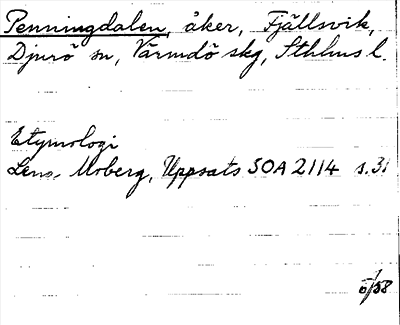 Penningdalen, åker, Fjällsvik,
Djurö sn, Värmdö skg, Sthlms l.
Etymologi
Lena Moberg, Uppsats SOA 2114 s. 31
5/58